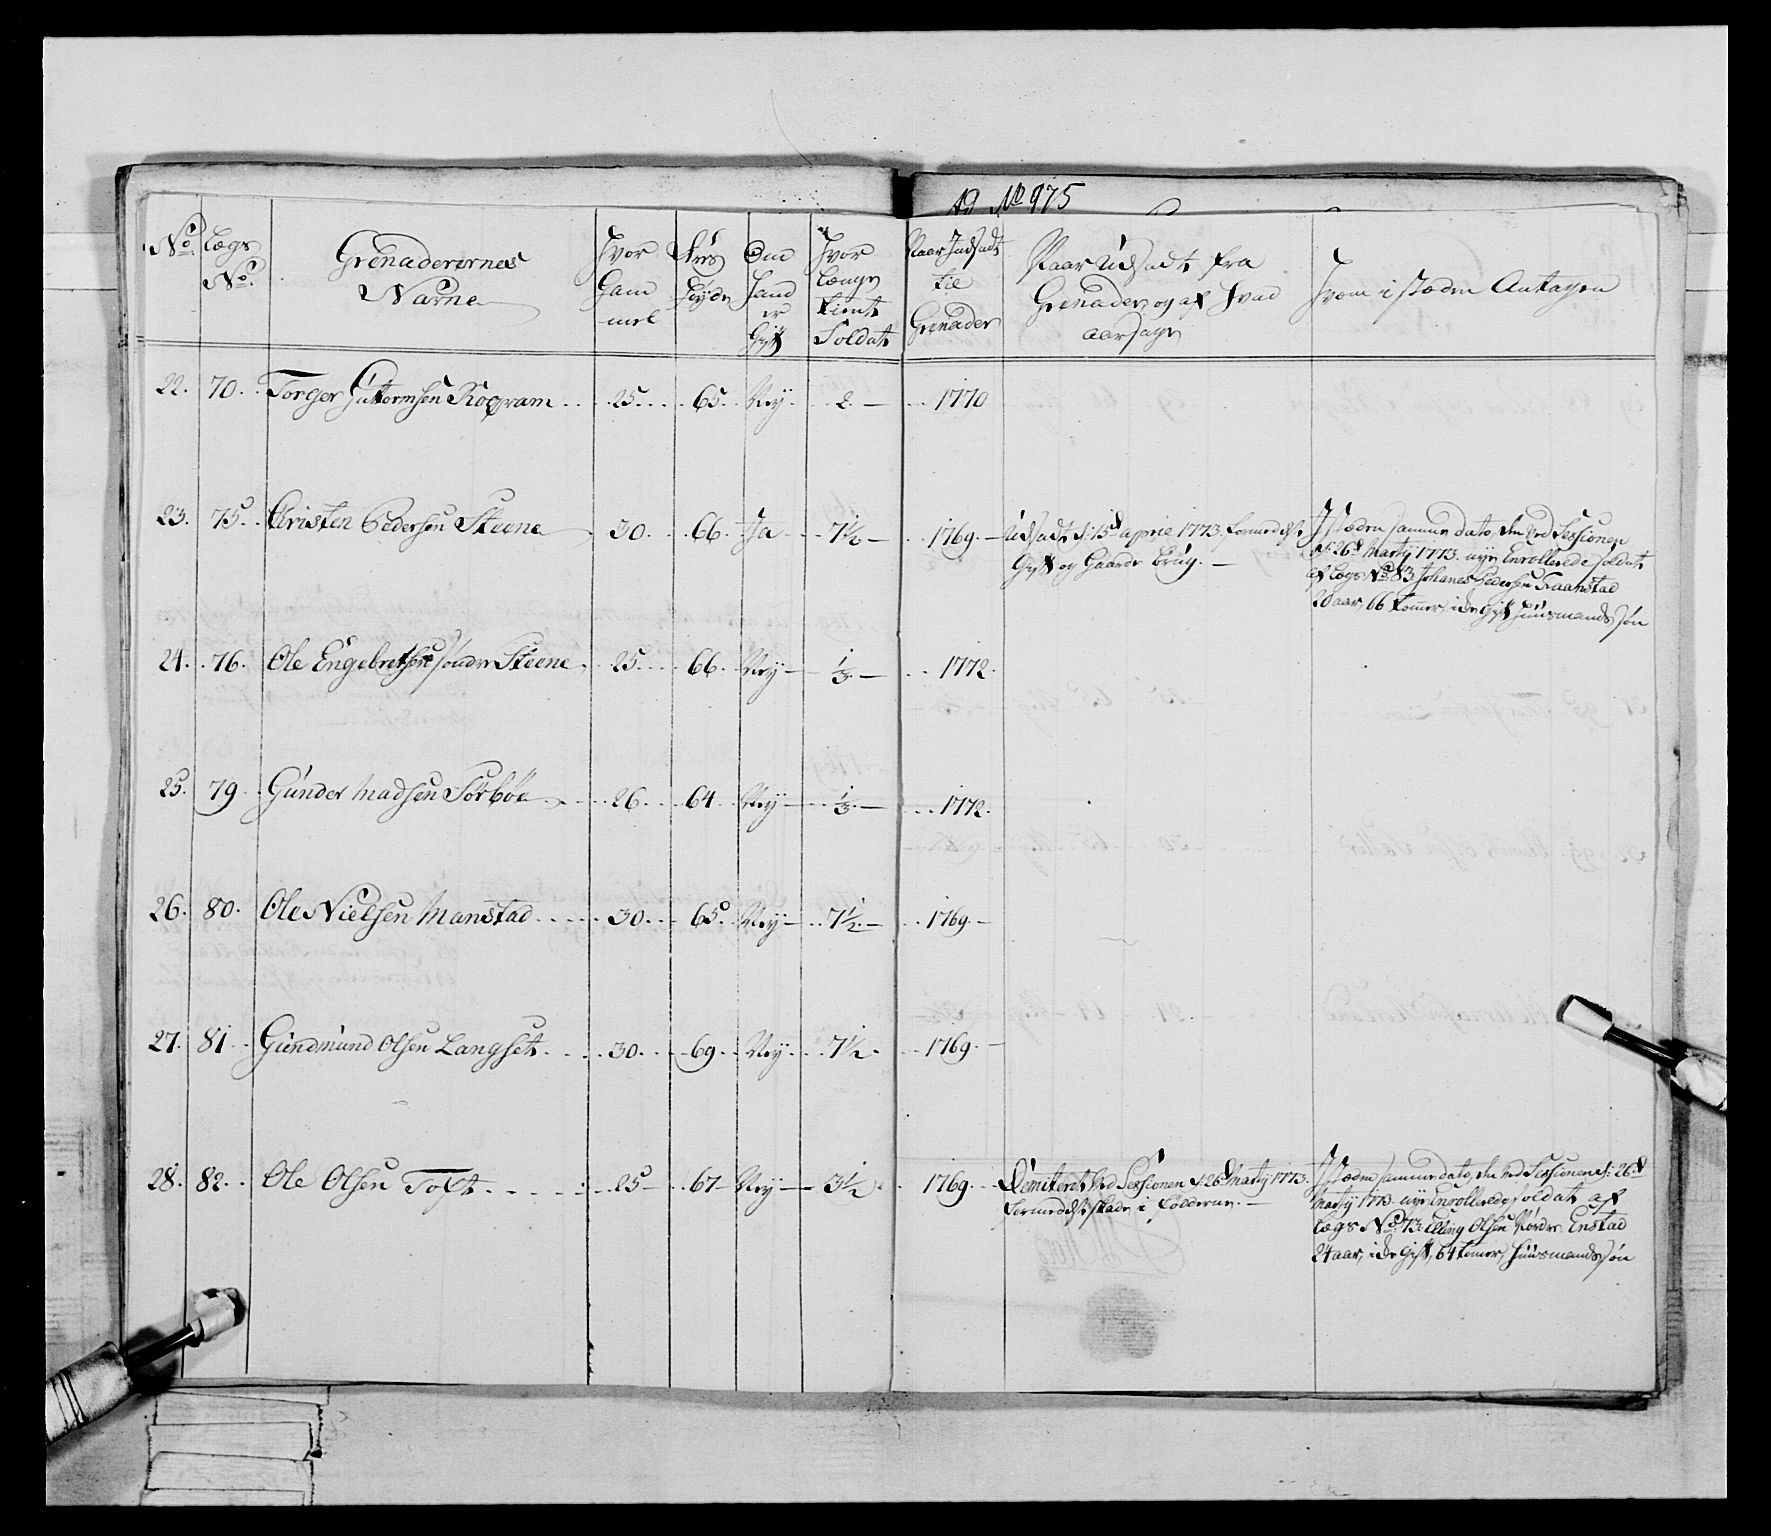 Ad No 975
No
Lægs No
Grenaderernes Nafne
Hvor Gammel
Øvrs Høyde
Om hand er Gift
Hvor længe tient Soldat
Naar Indsadt til Grenader
Naar Udsadt fra Grenader, og af hvad aarsage
Hvem i stæden Antagen
22. 70. Torger Guttormsen 25. 65. Ney 2. 1770
23. 75. Christen Pedersen Steene 30. 66. Ja 7 1/2 1769. Udsadt d: 15d aprie 1773. formedelst
Gift og Gaards brug.
I stæden samme dato, den ved Sessionen
d: 26d Martij 1773. nye Enrollerede soldat
af Lægs No 83 Johanes Pedersen Traanstad
20 aar, 66 tomer, icke gift huusmands søn
24. 76. Ole Engebretsen søndre Steene 25. 66. Ney 1/3. 1772.
25. 79. Gunder Madsen Sørbøe 26. 64. Ney 1/3. 1772.
26. 80. Ole Nielsen Manstad 30. 65. Ney 7 1/2. 1769.
27. 81. Gundmund Olsen Langset 30. 69. Ney 7 1/2. 1769.
28. 82. Ole Olsen Toft 25 67 Ney 3 1/2. 1769. Demiteret ved Sessionen d 26d Martij 1773.
formedelst skade i
I stæden samme dato, den ved Sessionen d: 26d
Martij 1773 nye Enrollerede soldat af
Lægs No 73. Elling Olsen Nordre Enstad
24 aar, icke gift, 64 tomer, huusmands søn